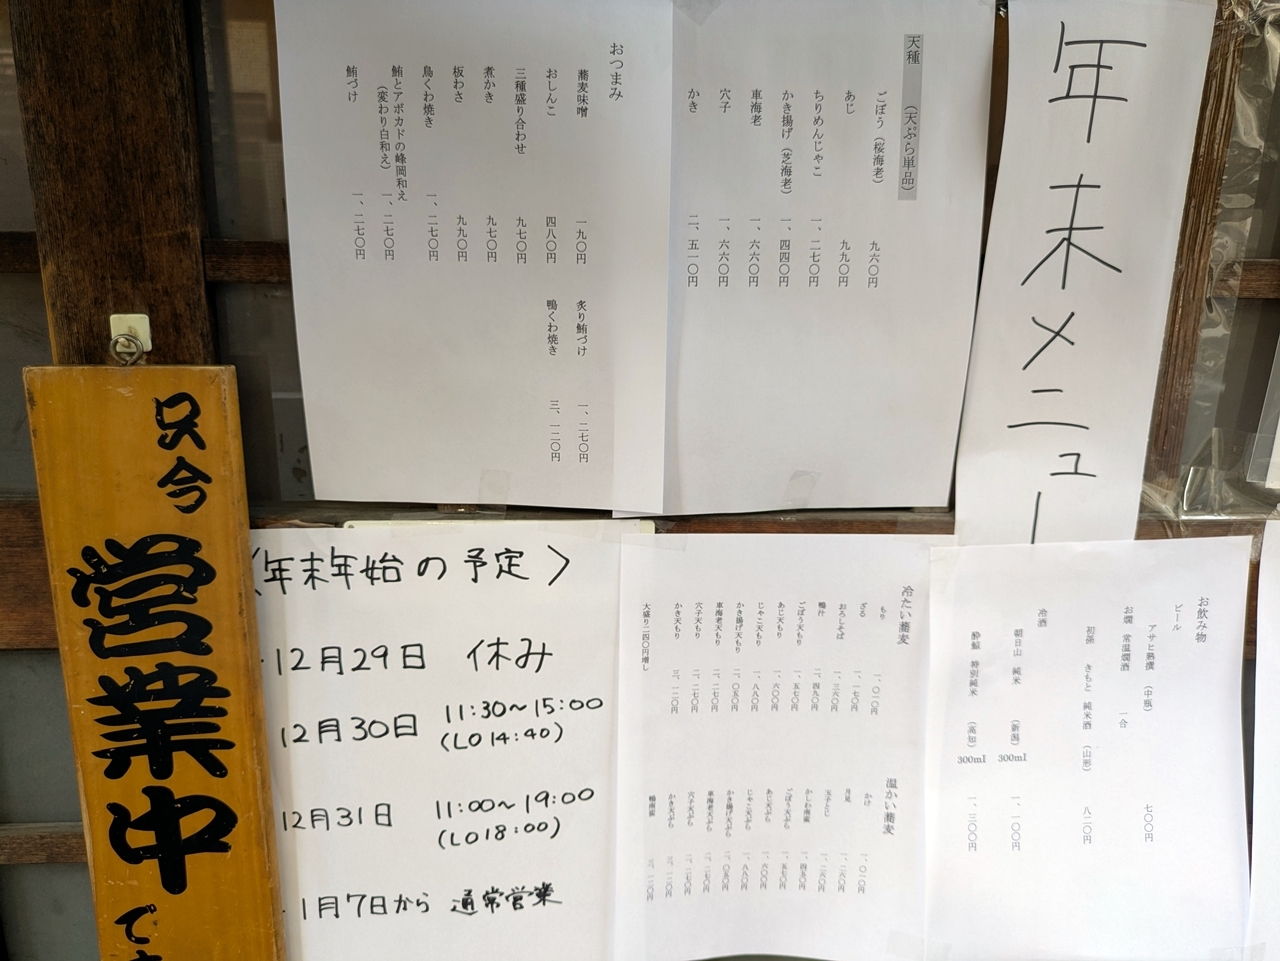 年末メニュー
天種 (天ぷら単品)
ごぼう (桜海老) 九六〇円
あじ 九九〇円
ちりめんじゃこ 一、二七〇円
かき揚げ (芝海老) 一、四四〇円
車海老 一、六六〇円
穴子 一、六六〇円
かき 二、五一〇円
おつまみ
蕎麦味噌 一九〇円
おしんこ 四八〇円
三種盛り合わせ 九七〇円
煮かき 九七〇円
板わさ 九九〇円
鳥くわ焼き 一、二七〇円
鮪とアボカドの峰岡和え
(変わり白和え) 一、二七〇円
鮪づけ 一、二七〇円
炙り鮪づけ 一、二七〇円
鴨くわ焼き 三、一二〇円
只今
営業中
で
〈年末年始の予定〉
・12月29日 休み
12月30日 11:30〜15:00
(LO 14:40)
12月31日 11:00〜19:00
(LO 18:00)
・1月7日から 通常営業
冷たい蕎麦
もり 一、〇一〇円
ざる 一、一七〇円
おろしそば 一、三六〇円
鴨汁 二、四九〇円
ごぼう天もり 一、五七〇円
あじ天もり 一、六〇〇円
じゃこ天もり 一、八八〇円
かき揚げ天もり 二、〇五〇円
車海老天もり 二、二七〇円
穴子天もり 二、二七〇円
かき天もり 三、一二〇円
大盛り二四〇円増し
温かい蕎麦
かけ 一、〇一〇円
月見 一、二六〇円
玉子とじ 一、二六〇円
かしわ南蛮 一、四五〇円
ごぼう天ぷら 一、五七〇円
あじ天ぷら 一、六〇〇円
じゃこ天ぷら 一、八八〇円
かき揚げ天ぷら 二、〇五〇円
車海老天ぷら 二、二七〇円
穴子天ぷら 二、二七〇円
かき天ぷら 三、一二〇円
鴨南蛮
お飲み物
ビール
アサヒ熟撰 (中瓶) 七〇〇円
お燗 常温燗酒 一合
初孫 きもと 純米酒 (山形) 八二〇円
冷酒
朝日山 純米 (新潟) 300ml 一、一〇〇円
酔鯨 特別純米 (高知) 300ml 一、三〇〇円